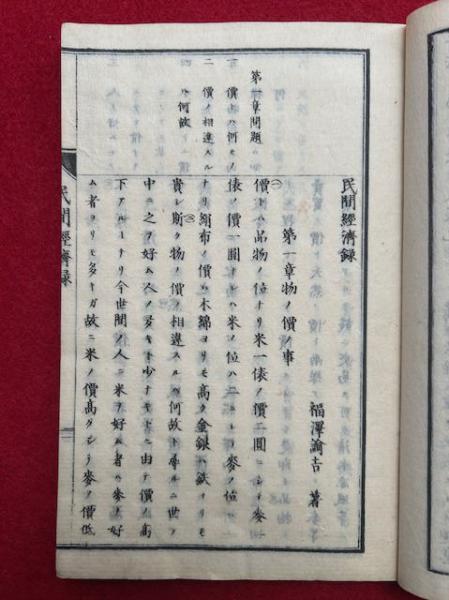 民間經濟録
福澤諭吉 著
第一章 物ノ價ノ事
㈠ 價トハ品物ノ位ナリ米一俵ノ價二圓ニシテ麥一
俵ノ價一圓ナレバ米ノ位ハ二ニシテ麥ノ位ハ一
ナリ絹布ノ價ハ木綿ヨリモ高ク金銀ハ鉄ヨリモ
貴シ㈡斯ク物ノ價ニ相違アルハ何故ト尋ルニ世ノ
中ニ之ヲ好ム人ノ多キト少ナキトニ由テ價ニ高
下アルコトナリ今世間ノ人ニ米ヲ好ム者ハ麥ヲ好
ム者ヨリモ多キガ故ニ米ノ價高クシテ麥ノ價低
第一章問題
一 價トハ何モノ
二 價ノ相違スル
ハ何故
民間經濟録